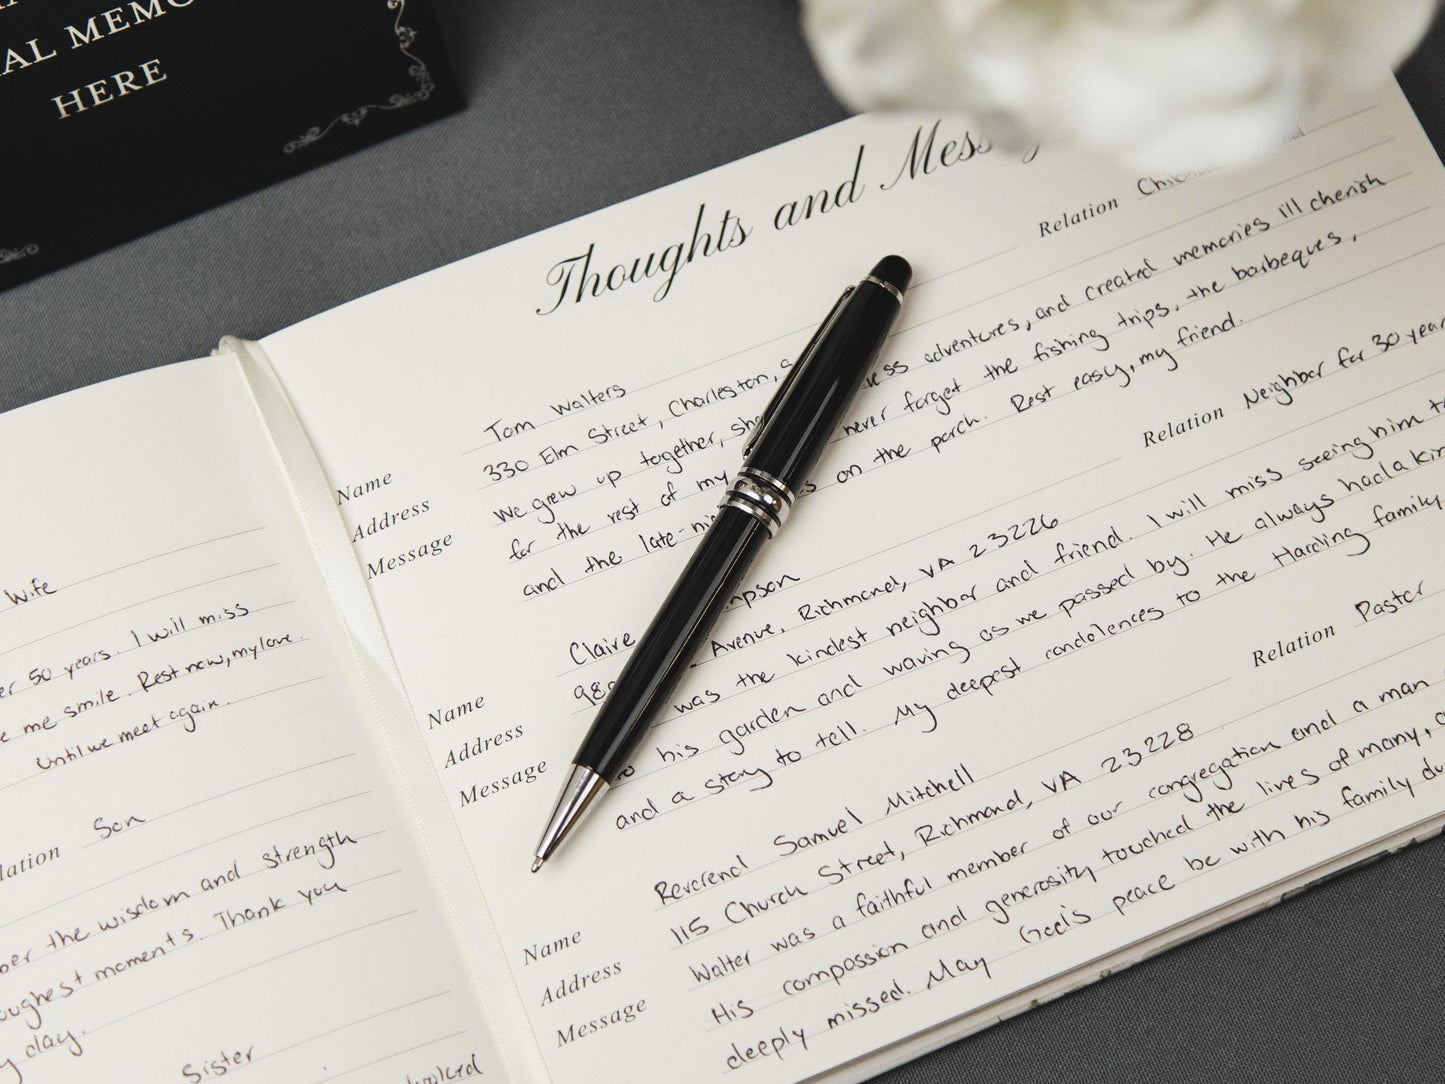 AL MEMO
HERE
Thoughts and Mess
Relation
Name Tom Walters
Address 330 Elm Street, Charleston,
Message We grew up together, adventures, and created memories I'll cherish
for the rest of my never forget the fishing trips, the barbeques,
and the late-ni on the porch. Rest easy, my friend.
Relation Neighbor for 30 year
Name Claire mpson
Address Avenue, Richmond, VA 23226
Message was the kindest neighbor and friend. I will miss seeing him
his garden and waving as we passed by. He always had a kin
and a story to tell. My deepest condolences to the Harding family
Relation Pastor
Name Reverend Samuel Mitchell
Address 115 Church Street, Richmond, VA 23228
Message Walter was a faithful member of our congregation and a man
His compassion and generosity touched the lives of many,
deeply missed. May God's peace be with his family du
Wife
er 50 years. I will miss
e me smile. Rest now, my love.
Until we meet again.
lation Son
ber the wisdom and strength
oughest moments. Thank you
y day.
Sister